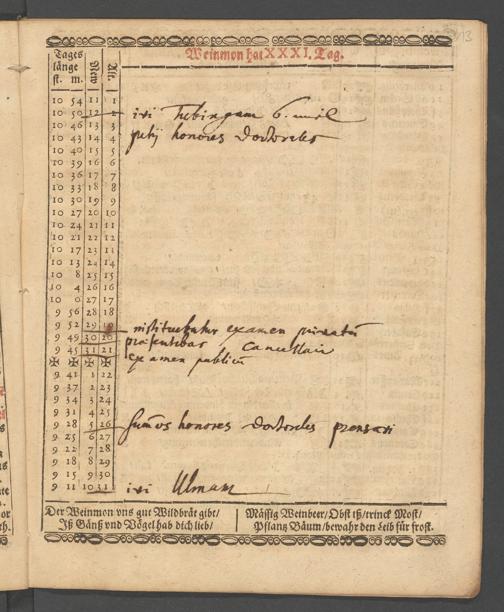 13
Weinmon hat XXXI. Tag.
Tages
länge
st. m. New Alt.
10 54 11 1
10 50 12 2
10 46 13 3
10 43 14 4
10 40 15 5
10 39 16 6
10 36 17 7
10 33 18 8
10 30 19 9
10 27 20 10
10 24 21 11
10 21 22 12
10 17 23 13
10 13 24 14
10 8 25 15
10 4 26 16
10 0 27 17
9 56 28 18
9 52 29 19
9 49 30 20
9 45 31 21
✠ ✠ ✠ ✠
9 41 1 22
9 37 2 23
9 34 3 24
9 31 4 25
9 28 5 26
9 25 6 27
9 22 7 28
9 18 8 29
9 15 9 30
9 11 10 31
ivi Tubingam 6. mil
petij honores Doctorales
instituebatur examen privatū
praesentabar Cancellario
examen publicū
sum̄os honores doctorales
ivi Ulmam
Der Weinmon vns gut Wildbrät gibt/
Iß Gänß vnd Vögel hab dich lieb/
Mässig Weinbeer/Obst iß/trinck Most/
Pflantz Bäum/bewahr den Leib für frost.